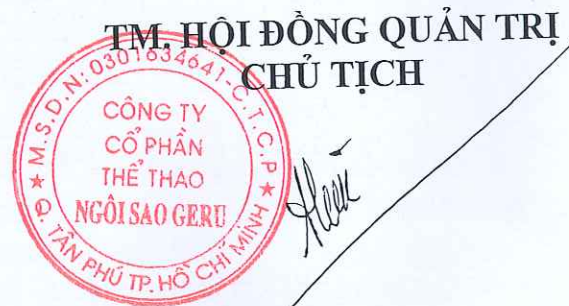 TM. HỘI ĐỒNG QUẢN TRỊ
CHỦ TỊCH
M.S.D.N: 0301634641-C.T.C.P
CÔNG TY
CỔ PHẦN
THỂ THAO
NGÔI SAO GERU
Q. TÂN PHÚ TP. HỒ CHÍ MINH